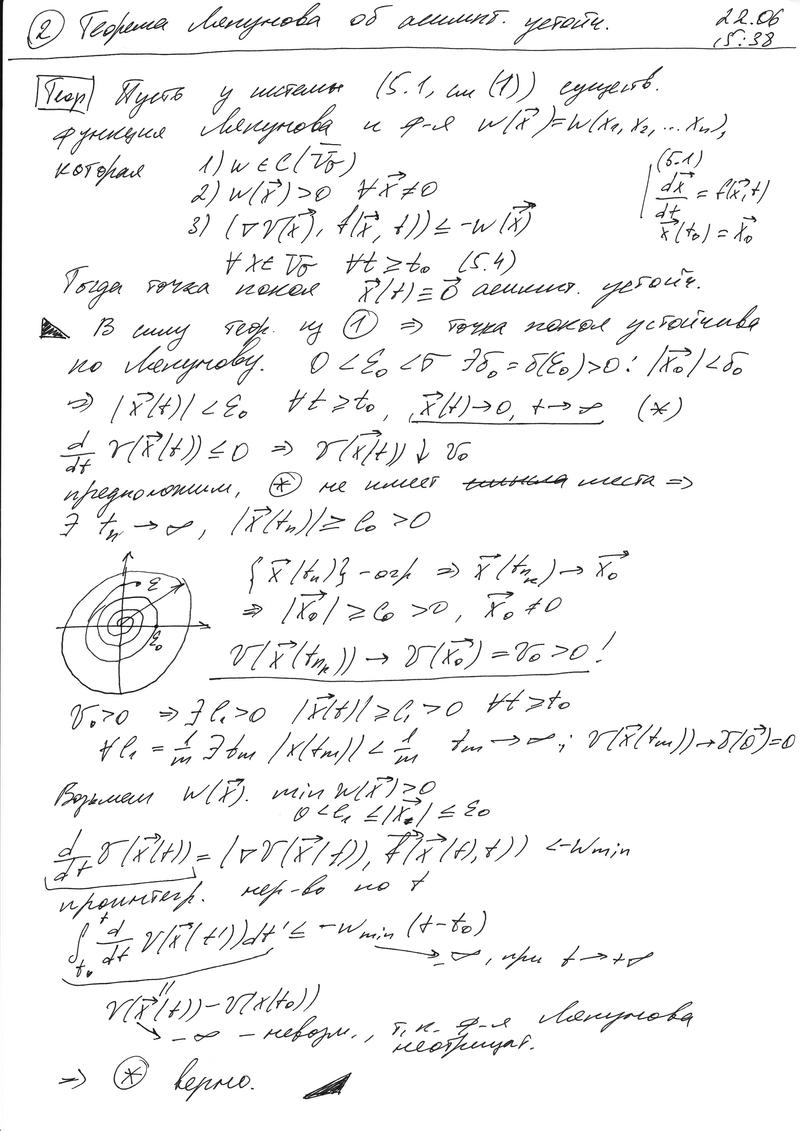 ② Теорема Ляпунова об асимпт. устойч.
22.06
15:38
Теор Пусть у системы (5.1, см (1)) существ.
функция Ляпунова и ф-я w(x⃗)=w(x₁, x₂, ... xₙ),
которая 1) w ∈ C(V̅σ)
2) w(x⃗)>0 ∀x⃗≠0
3) (∇V(x⃗), f⃗(x⃗, t)) ≤ -w(x⃗)
∀x∈V̅σ ∀t≥t₀ (5.4)
(5.1)
dx⃗/dt = f(x⃗,t)
x⃗(t₀) = x⃗₀
Тогда точка покоя x⃗(t)≡0⃗ асимпт. устойч.
В силу теор. из ① ⇒ точка покоя устойчива
по Ляпунову. 0<ε₀<σ ∃δ₀=δ(ε₀)>0: |x⃗₀|<δ₀
⇒ |x⃗(t)|<ε₀ ∀t≥t₀, x⃗(t)→0, t→∞ (*)
d/dt V(x⃗(t)) ≤ 0 ⇒ V(x⃗(t))↓ v₀
предположим, (*) не имеет места ⇒
∃ tₙ→∞, |x⃗(tₙ)| ≥ C₀ > 0
ε
ε₀
{x⃗(tₙ)} - огр ⇒ x⃗(tₙₖ)→x⃗₀
⇒ |x⃗₀| ≥ C₀ > 0, x⃗₀ ≠ 0
V(x⃗(tₙₖ)) → V(x⃗₀) = v₀ > 0!
v₀>0 ⇒ ∃ C₁>0 |x⃗(t)| ≥ C₁ > 0 ∀t≥t₀
∀C₁ = 1/m ∃tₘ |x(tₘ)| < 1/m tₘ→∞; V(x⃗(tₘ))→V(0⃗)=0
Возьмем w(x⃗). min w(x⃗)>0
0<C₁≤|x⃗|≤ε₀
d/dt V(x⃗(t)) = (∇V(x⃗(t)), f⃗(x⃗(t),t)) <-wmin
проинтегр. нер-во по t
∫ₜ₀ᵗ d/dt V(x⃗(t'))dt' ≤ -wmin (t-t₀)
→ -∞, при t→+∞
"
V(x⃗(t)) - V(x(t₀))
→ -∞ - невозм., т.к. ф-я Ляпунова
неотрицат.
⇒ (*) верно.